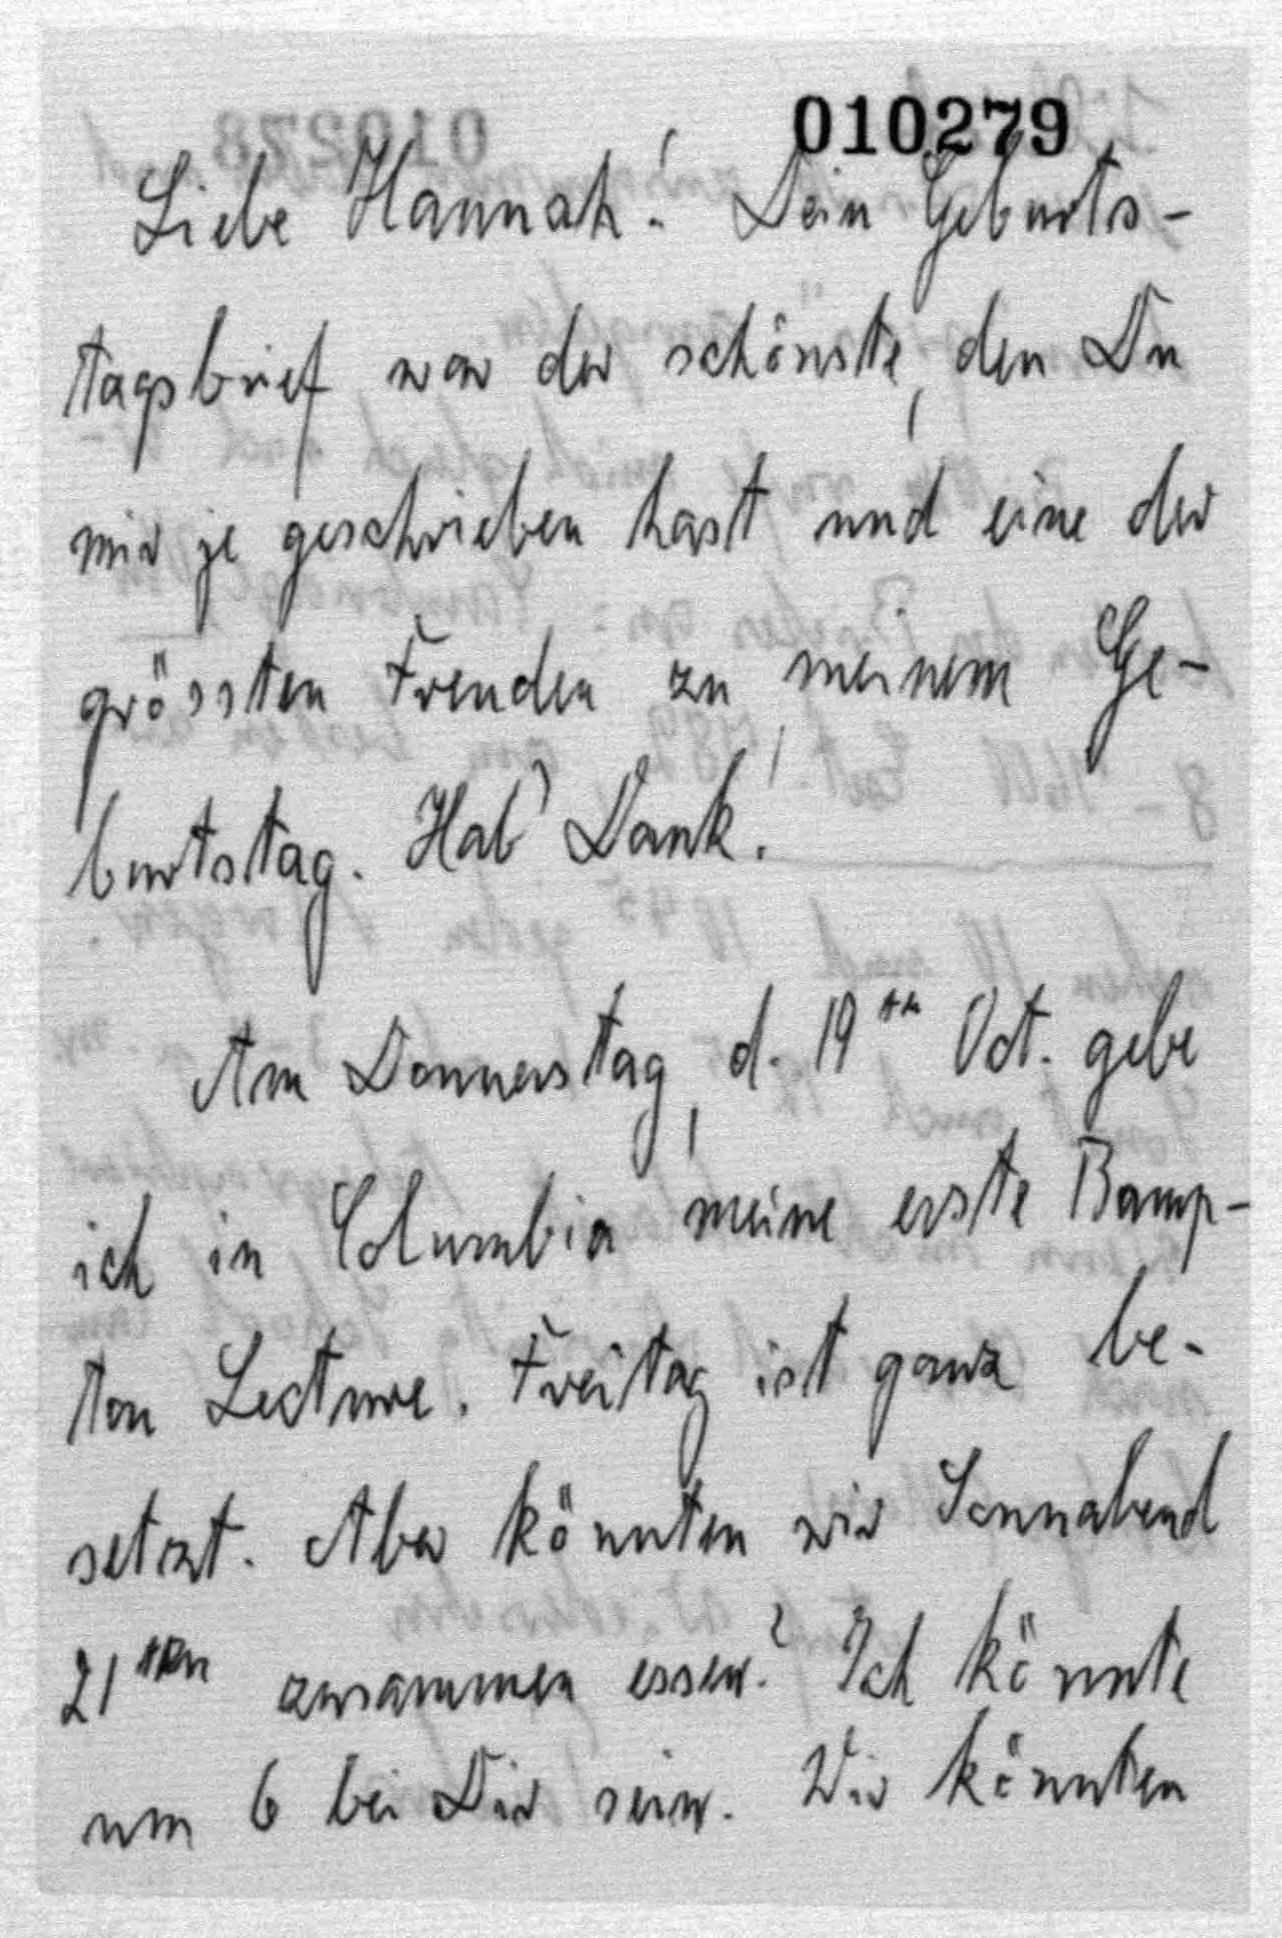 010279
Liebe Hannah! Dein Geburts-
tagsbrief war der schönste, den Du
mir je geschrieben hast und eine der
grössten Freuden zu meinem Ge-
burtstag. Hab' Dank!
Am Donnerstag, d. 19ten Oct. gebe
ich in Columbia meine erste Bamp-
ton Lecture. Freitag ist ganz be-
setzt. Aber könnten wir Sonnabend
21ten zusammen essen? Ich könnte
um 6 bei Dir sein. Wir könnten